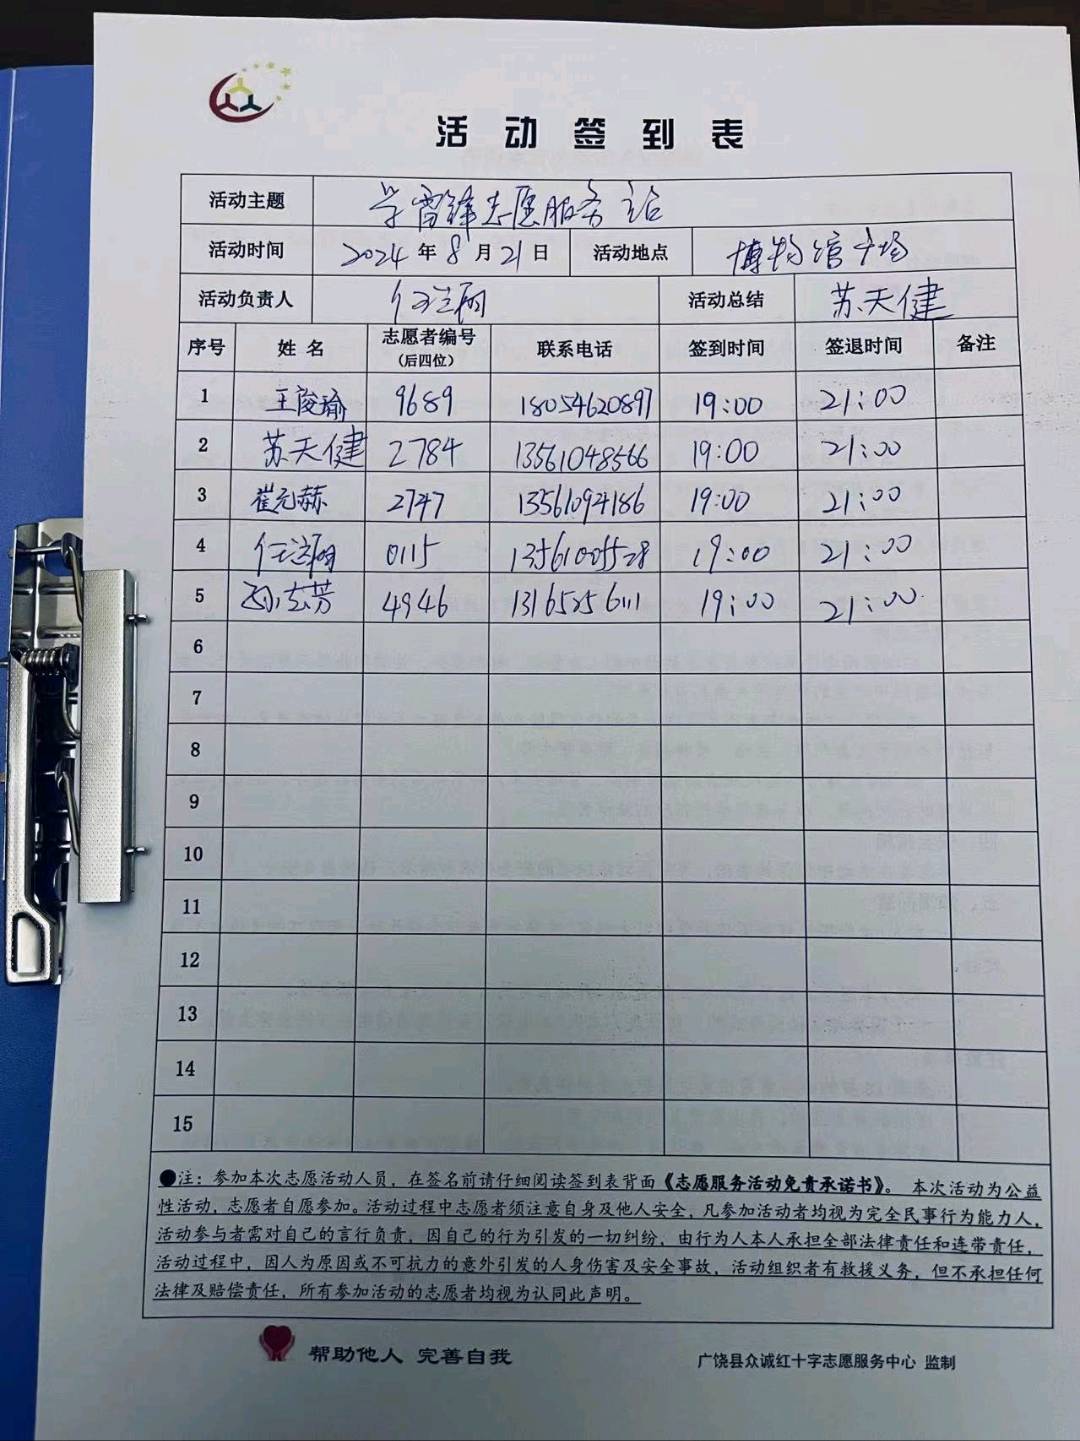 活动签到表
活动主题 学雷锋志愿服务站
活动时间 2024年8月21日 活动地点 博物馆广场
活动负责人 活动总结 苏天健
序号 姓名 志愿者编号(后四位) 联系电话 签到时间 签退时间 备注
1 王俊瑜 9689 18054620897 19:00 21:00
2 苏天健 2784 13561048566 19:00 21:00
3 崔元赫 2747 13561094186 19:00 21:00
4 0115 13561005528 19:00 21:00
5 4946 19:00 21:00
6
7
8
9
10
11
12
13
14
15
●注：参加本次志愿活动人员，在签名前请仔细阅读签到表背面《志愿服务活动免责承诺书》。本次活动为公益
性活动，志愿者自愿参加。活动过程中志愿者须注意自身及他人安全，凡参加活动者均视为完全民事行为能力人，
活动参与者需对自己的言行负责，因自己的行为引发的一切纠纷，由行为人本人承担全部法律责任和连带责任，
活动过程中，因人为原因或不可抗力的意外引发的人身伤害及安全事故，活动组织者有救援义务，但不承担任何
法律及赔偿责任，所有参加活动的志愿者均视为认同此声明。
帮助他人 完善自我 广饶县众诚红十字志愿服务中心 监制